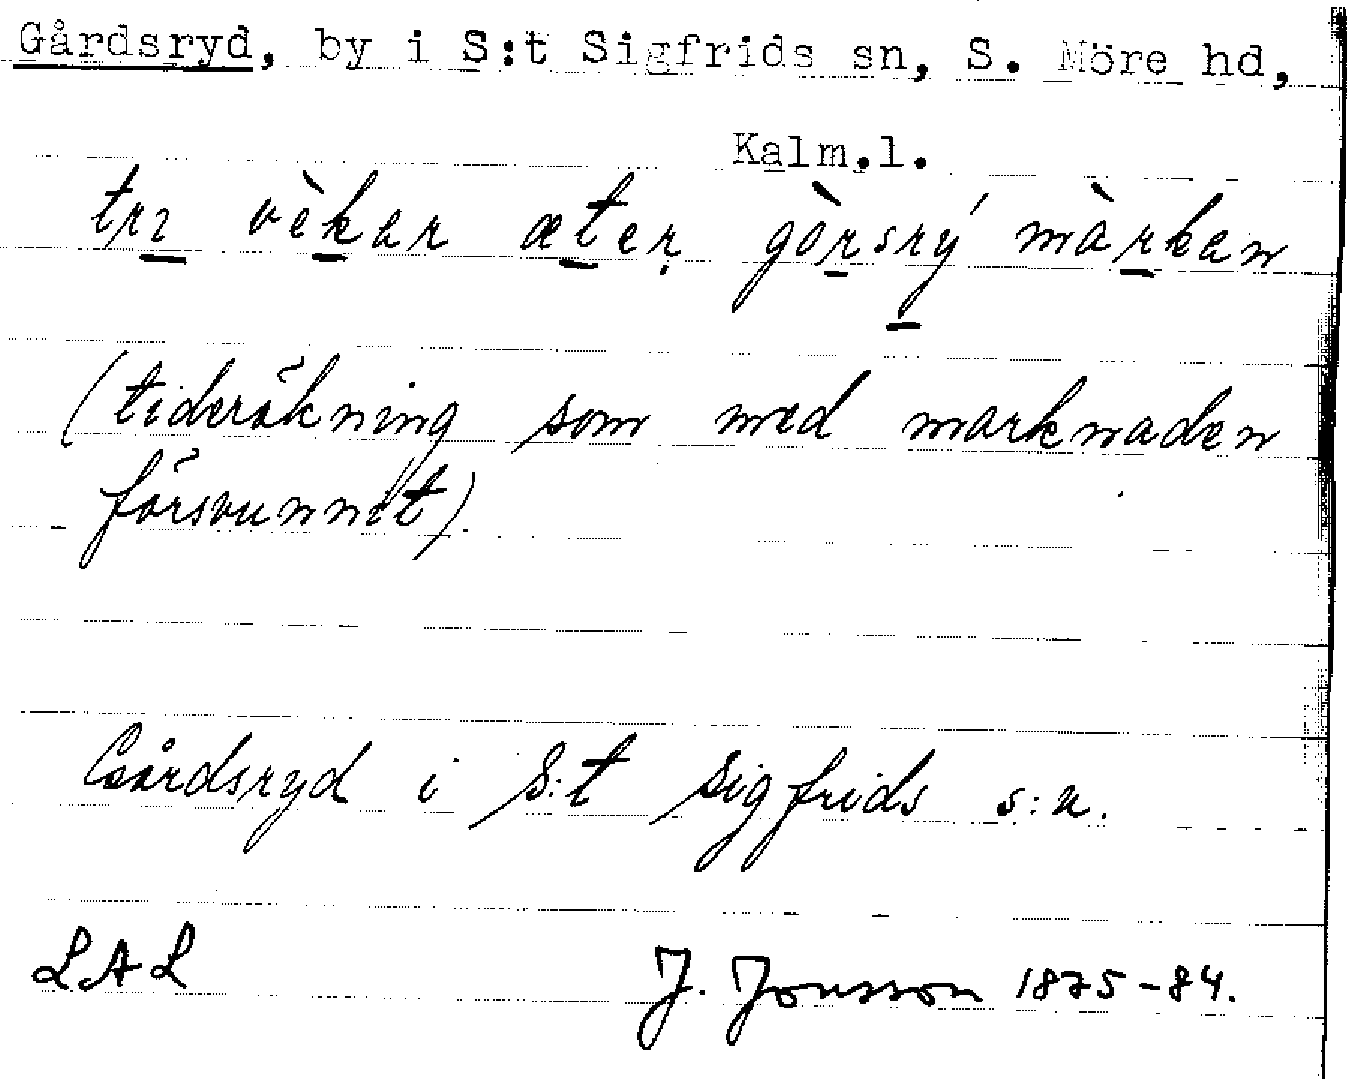 Gårdsryd, by i S:t Sigfrids sn, S. Möre hd,
Kalm.l.
trɿ vèkar æter gòrsrý màrkan
(tideräkning som med marknaden
försvunnit)
Gårdsryd i S:t Sigfrids s:n.
LAL J. Jonsson 1875-84.